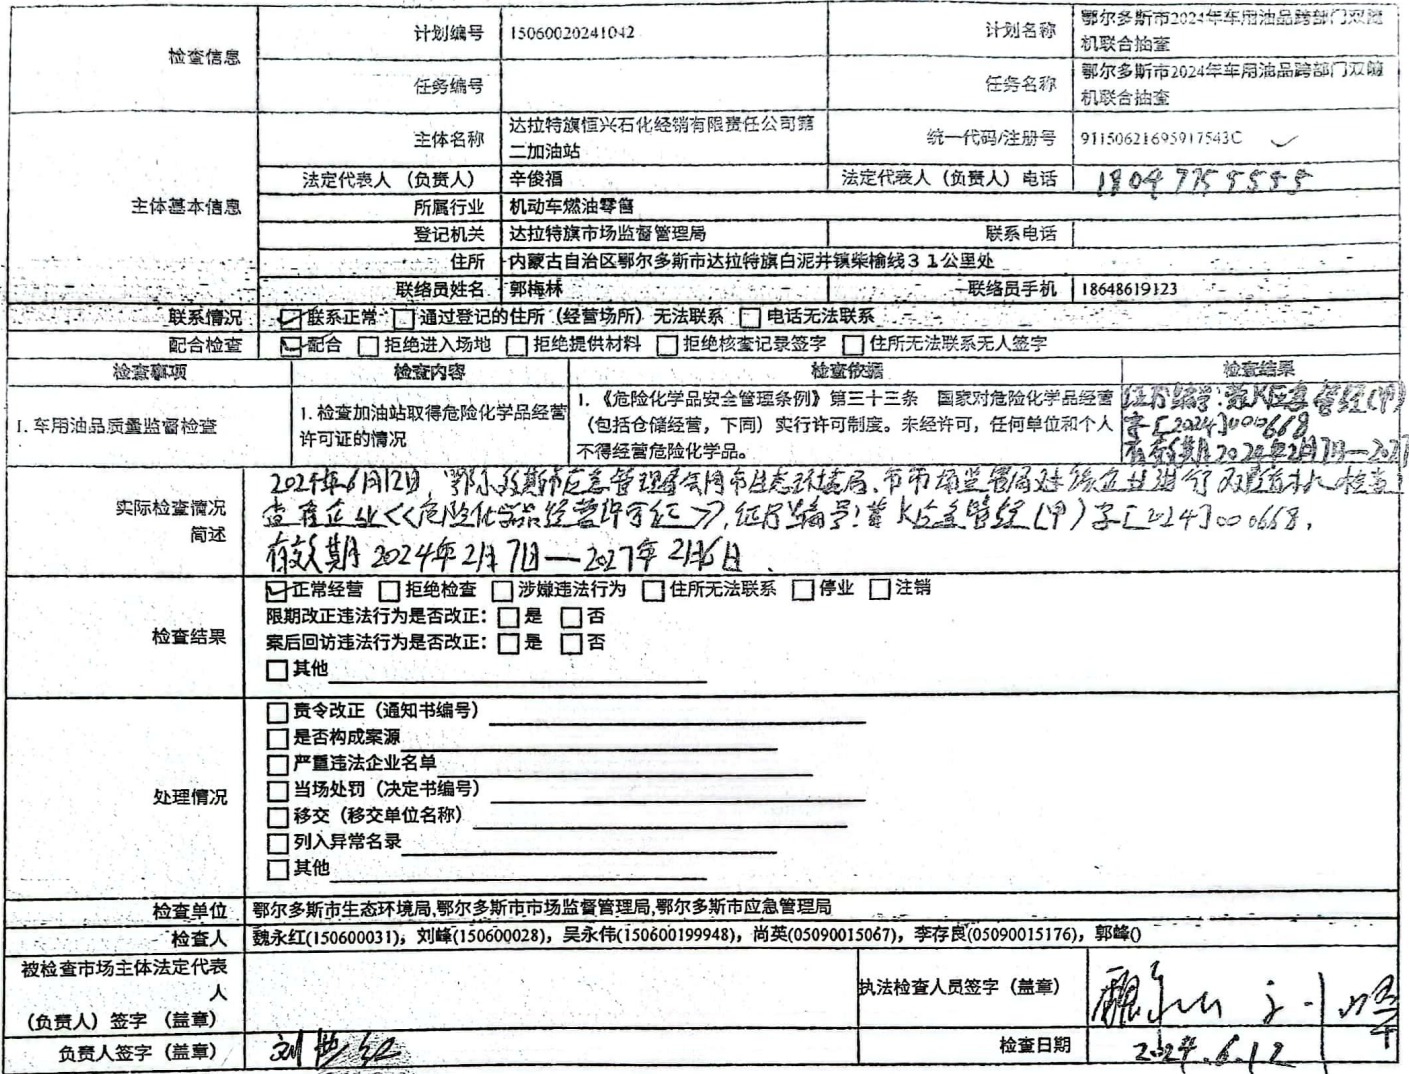 检查信息
计划编号 15060020241042 计划名称 鄂尔多斯市2024年车用油品跨部门双随
机联合抽查
任务编号 任务名称 鄂尔多斯市2024年车用油品跨部门双随
机联合抽查
主体基本信息
主体名称 达拉特旗恒兴石化经销有限责任公司第
二加油站
统一代码/注册号 91150621695917543C
法定代表人（负责人） 辛俊福 法定代表人（负责人）电话
所属行业 机动车燃油零售
登记机关 达拉特旗市场监督管理局 联系电话
住所 内蒙古自治区鄂尔多斯市达拉特旗白泥井镇柴榆线３１公里处
联络员姓名 郭梅林 联络员手机 18648619123
联系情况 联系正常 通过登记的住所（经营场所）无法联系 电话无法联系
配合检查 配合 拒绝进入场地 拒绝提供材料 拒绝核查记录签字 住所无法联系无人签字
检查事项 检查内容 检查依据 检查结果
1. 车用油品质量监督检查
1. 检查加油站取得危险化学品经营
许可证的情况
1. 《危险化学品安全管理条例》第三十三条 国家对危险化学品经营
（包括仓储经营，下同）实行许可制度。未经许可，任何单位和个人
不得经营危险化学品。
证书编号:蒙K应急管经(甲)
字[2024]000668
有效期2024年2月7日—2027
实际检查情况
简述
2024年6月12日，鄂尔多斯市应急管理局会同市生态环境局、市市场监管局对该企业进行双随机检查
查看企业<<危险化学品经营许可证>>,证书编号:蒙K应急管经(甲)字[2024]000668,
有效期2024年2月7日—2027年2月6日.
检查结果
正常经营 拒绝检查 涉嫌违法行为 住所无法联系 停业 注销
限期改正违法行为是否改正： 是 否
案后回访违法行为是否改正： 是 否
其他
处理情况
责令改正（通知书编号）
是否构成案源
严重违法企业名单
当场处罚（决定书编号）
移交（移交单位名称）
列入异常名录
其他
检查单位 鄂尔多斯市生态环境局,鄂尔多斯市市场监督管理局,鄂尔多斯市应急管理局
检查人 魏永红(150600031)，刘峰(150600028)，吴永伟(150600199948)，尚英(05090015067)，李存良(05090015176)，郭峰()
被检查市场主体法定代表
人
（负责人）签字（盖章）
执法检查人员签字（盖章）
负责人签字（盖章） 检查日期 2024.6.12